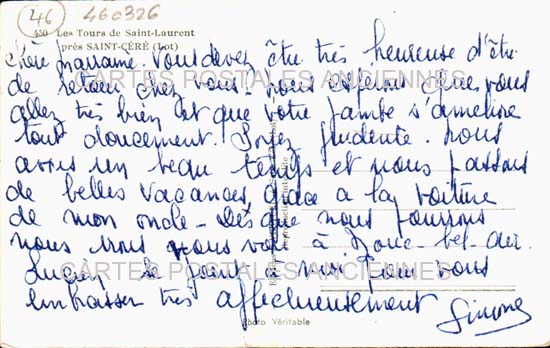 46
460326
450 Les Tours de Saint-Laurent
près SAINT-CÉRÉ (Lot)
Chère marraine. Vous devez être très heureuse d'être
de retour chez vous. nous espérons que vous
allez très bien et que votre jambe s'améliore
tout doucement. Soyez prudente. nous
avons un beau temps et nous passons
de belles vacances, grace a la voiture
de mon oncle - Dès que nous pourrons
nous irons vous voir à
Lucien se joint à moi pour vous
embrasser très affectueusement Simone
CARTES POSTALES ANCIENNES
CARTES POSTALES ANCIENNES
Photo Véritable